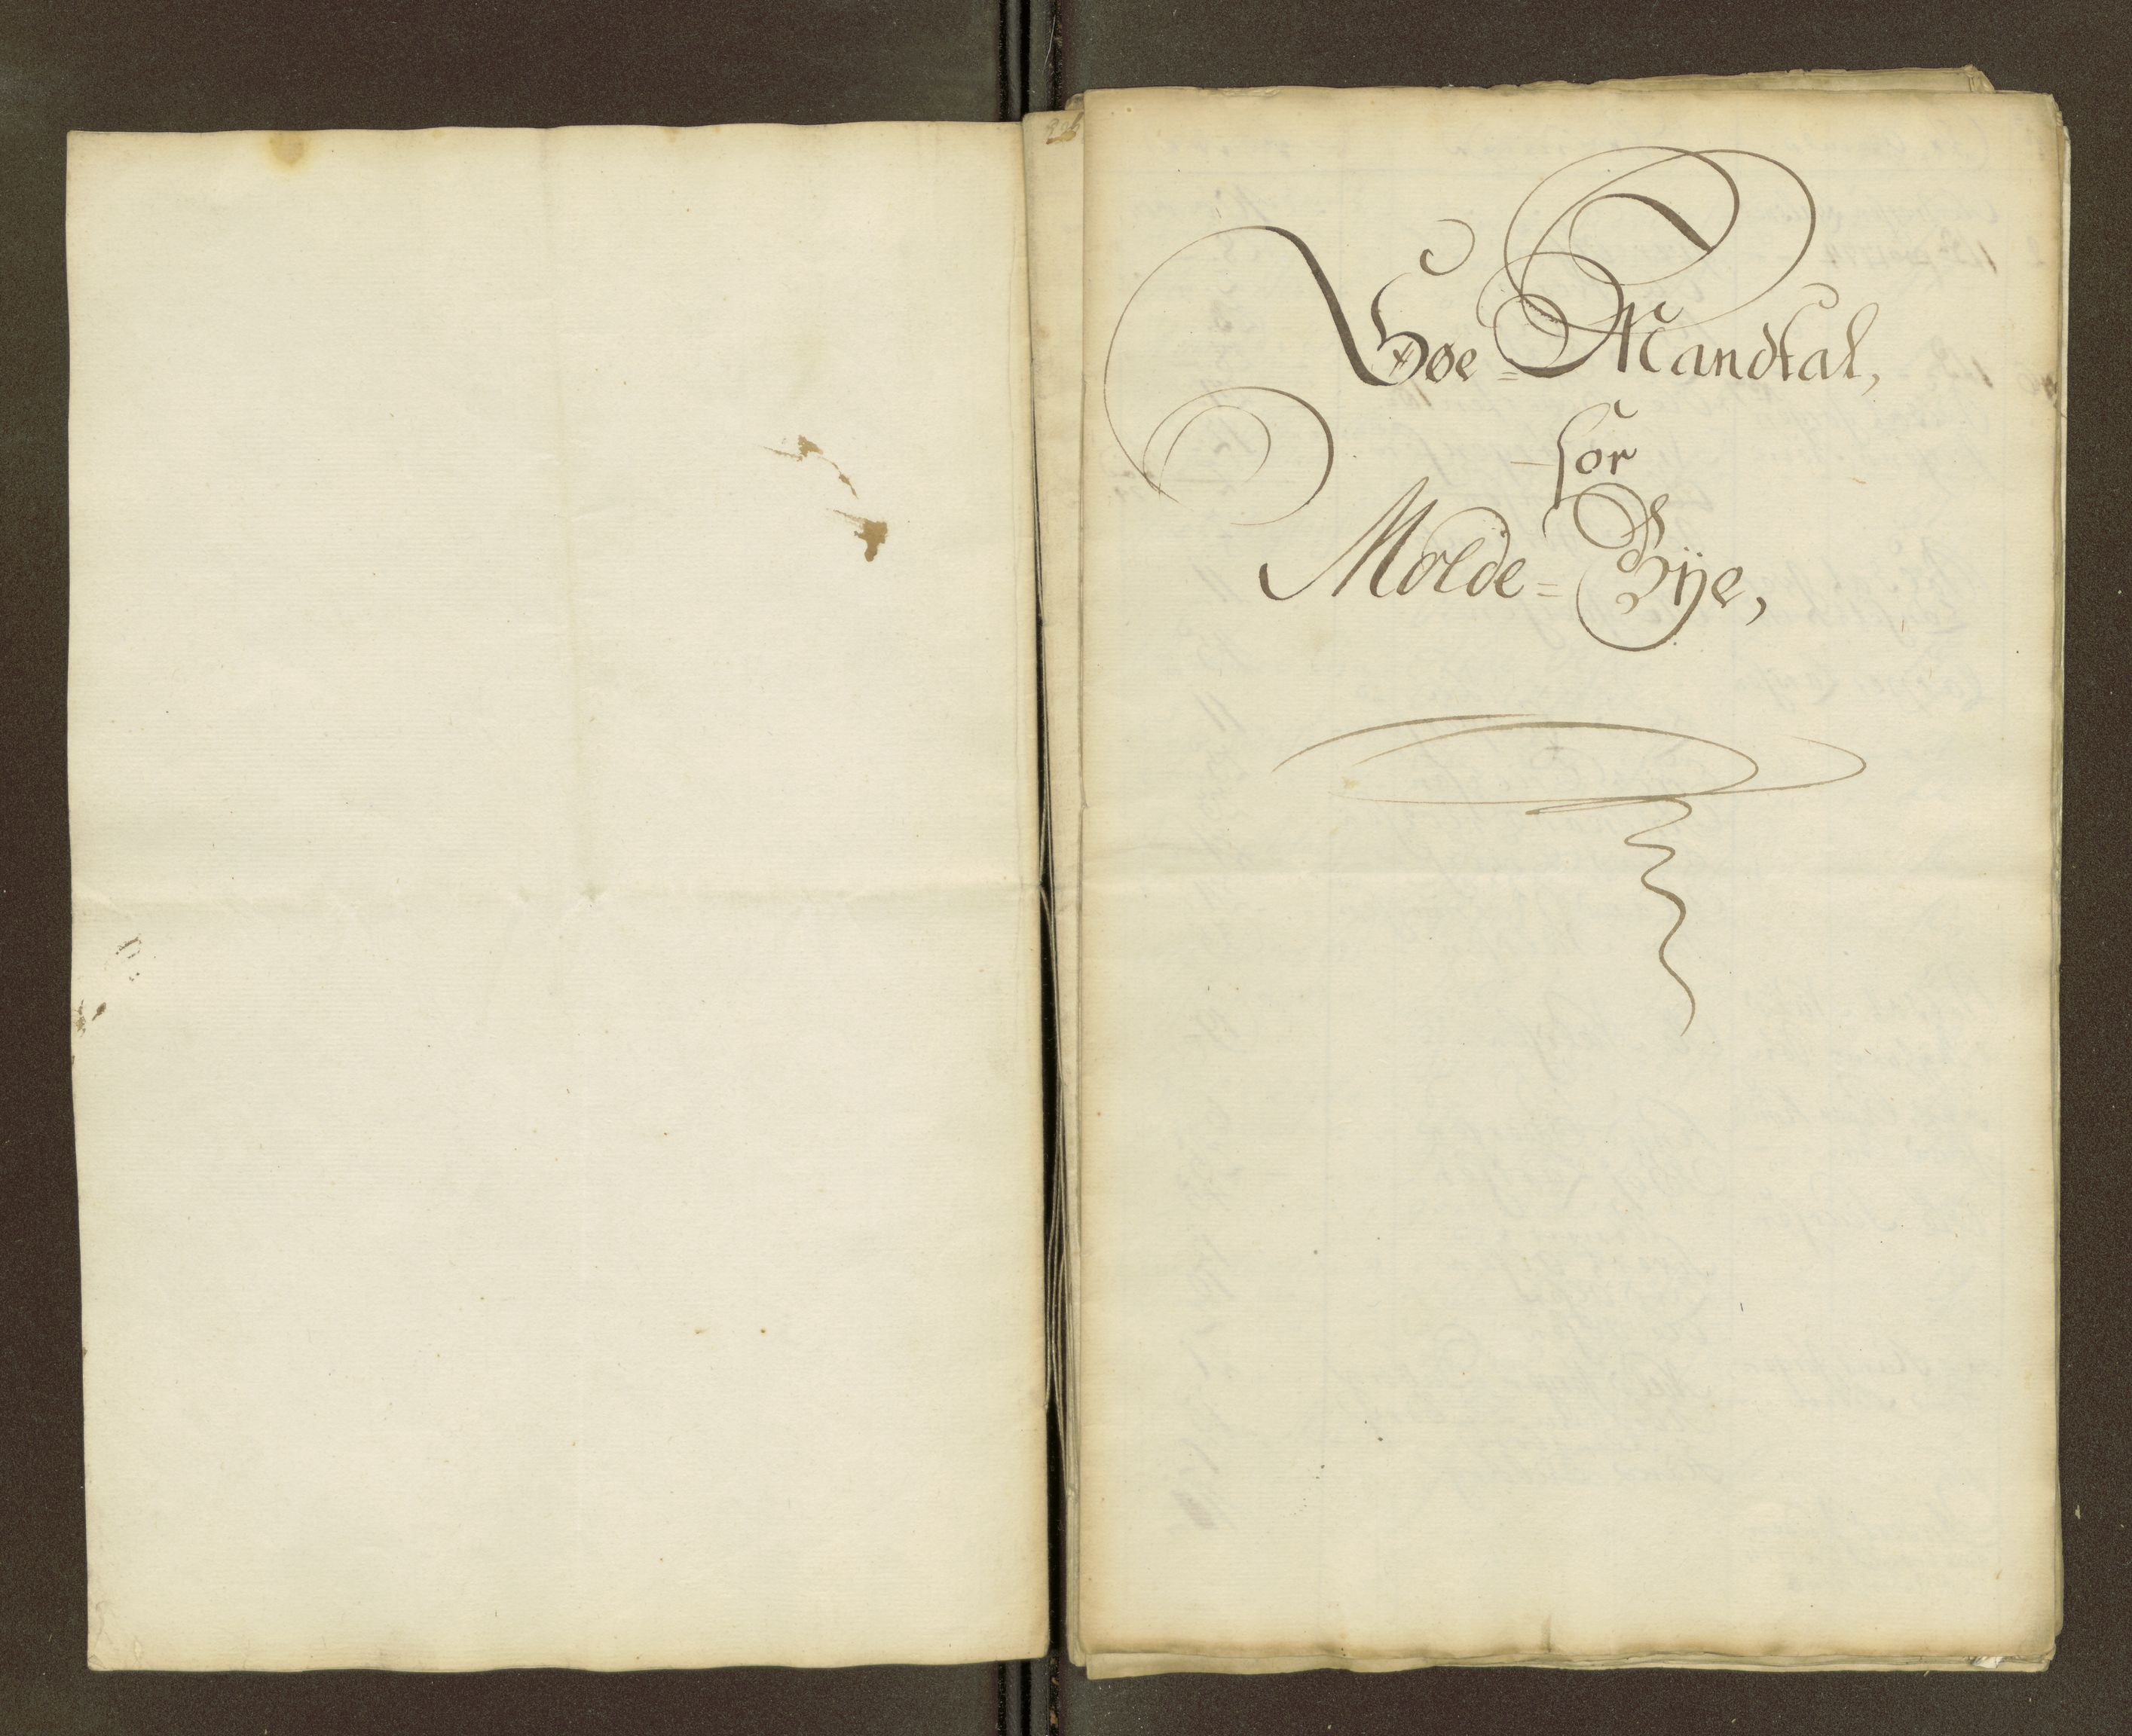 Søe=Mandtal,
for
Molde=Bÿe,